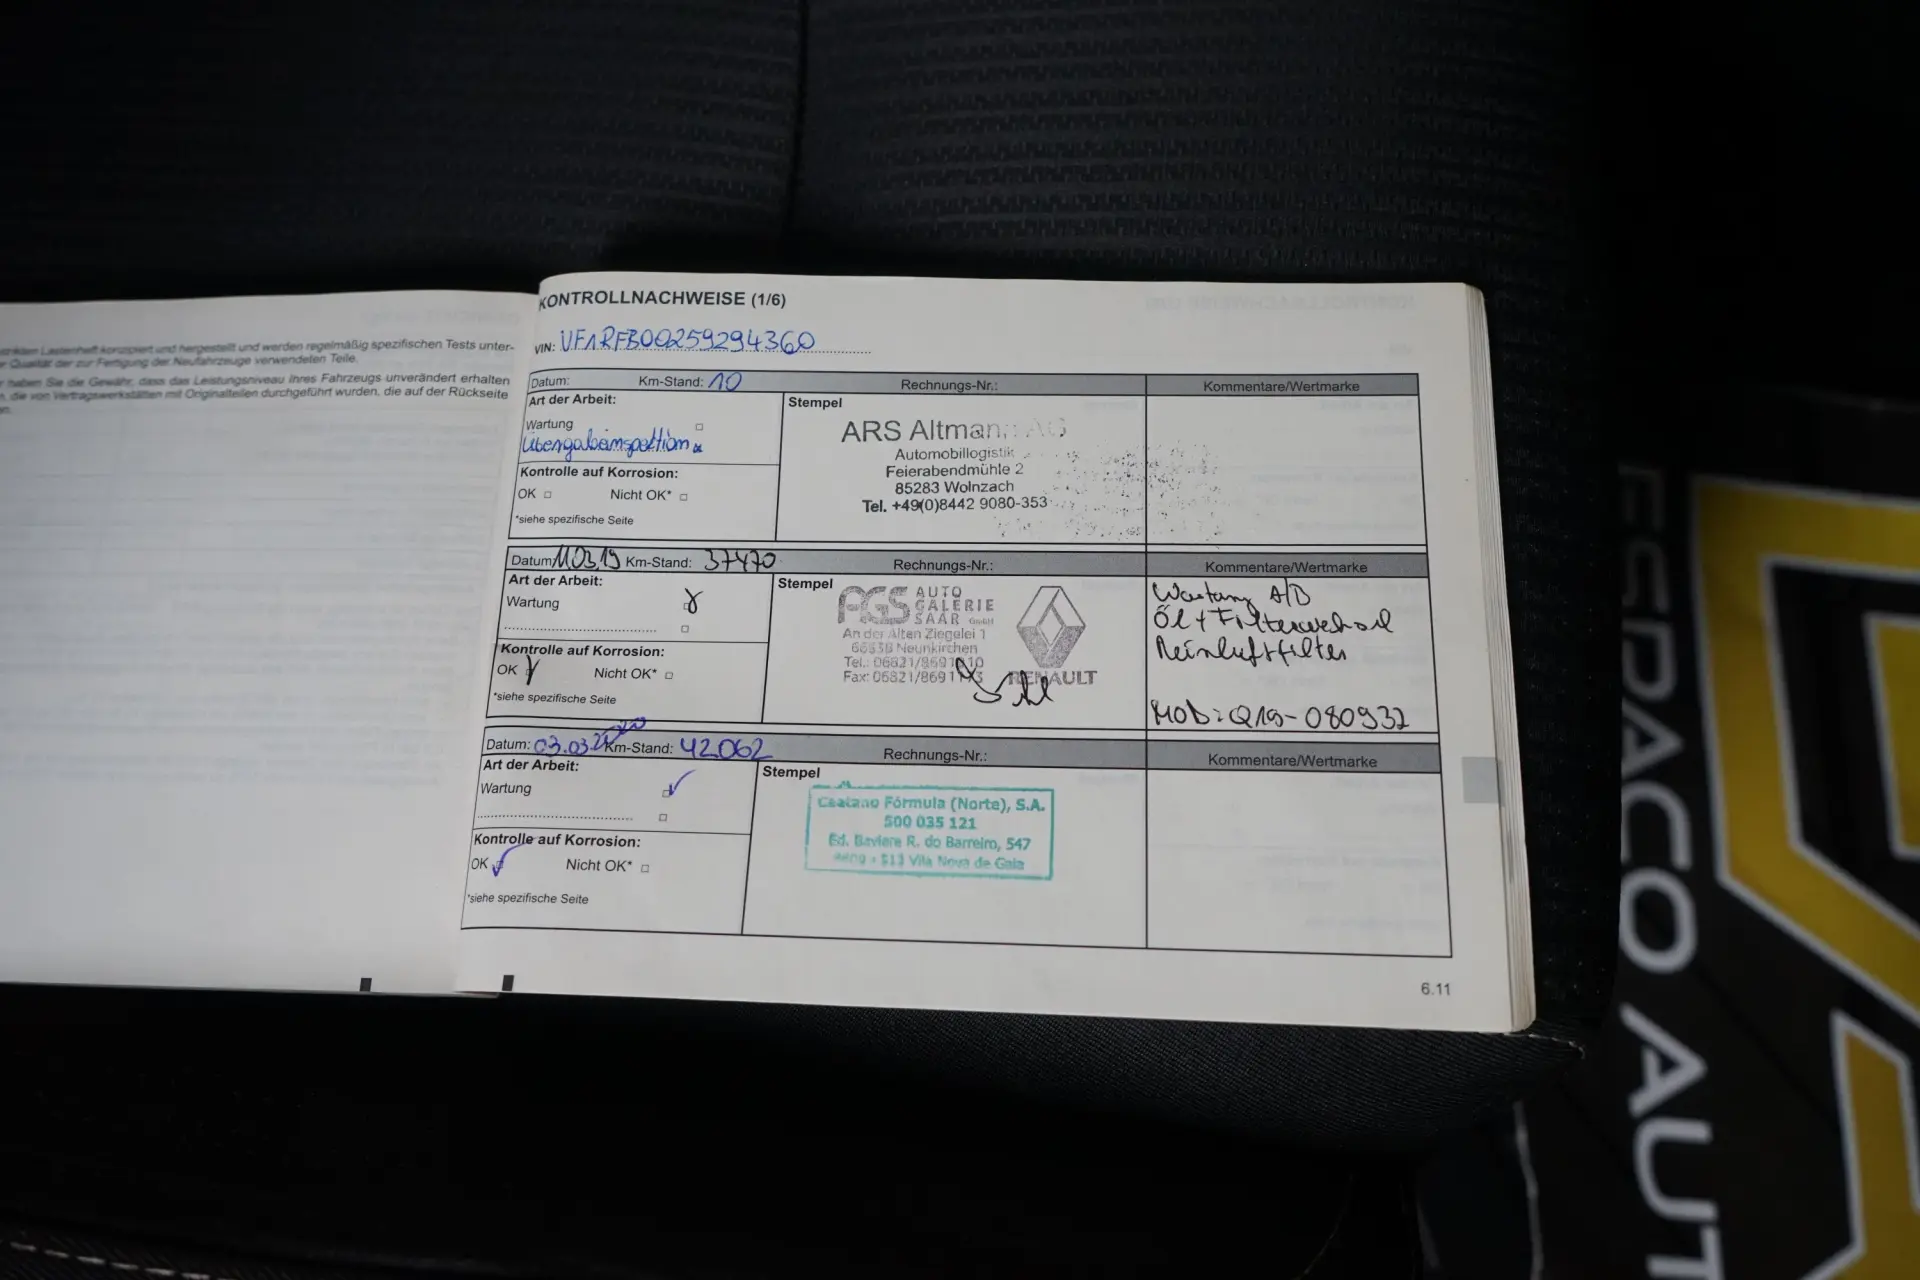 Lastenheft konzipiert und hergestellt und werden regelmäßig spezifischen Tests unter-
Qualität der zur Fertigung der Neufahrzeuge verwendeten Teile.
haben Sie die Gewähr, dass das Leistungsniveau Ihres Fahrzeugs unverändert erhalten
die von Vertragswerkstätten mit Originalteilen durchgeführt wurden, die auf der Rückseite
KONTROLLNACHWEISE (1/6)
VIN: VF1RFB00259294360
Datum: Km-Stand: 10 Rechnungs-Nr.: Kommentare/Wertmarke
Art der Arbeit:
Wartung
Übergabeinspektion
Kontrolle auf Korrosion:
OK Nicht OK*
*siehe spezifische Seite
Stempel
ARS Altmann AG
Automobillogistik
Feierabendmühle 2
85283 Wolnzach
Tel. +49(0)8442 9080-353
Datum: 11.03.19 Km-Stand: 37470 Rechnungs-Nr.: Kommentare/Wertmarke
Art der Arbeit:
Wartung
Kontrolle auf Korrosion:
OK Nicht OK*
*siehe spezifische Seite
Stempel
AGS AUTO
GALERIE
SAAR GmbH
An der Alten Ziegelei 1
66538 Neunkirchen
Tel.: 06821/8691
Fax: 06821/8691
RENAULT
Wartung A/B
Öl + Filterwechsel
Reinluftfilter
MOB: Q19-080932
Datum: 03.03. Km-Stand: 42.062 Rechnungs-Nr.: Kommentare/Wertmarke
Art der Arbeit:
Wartung
Kontrolle auf Korrosion:
OK Nicht OK*
*siehe spezifische Seite
Stempel
Caetano Fórmula (Norte), S.A.
500 035 121
Ed. Baviera R. do Barreiro, 547
513 Vila Nova de Gaia
6.11
ESPAÇO AUT